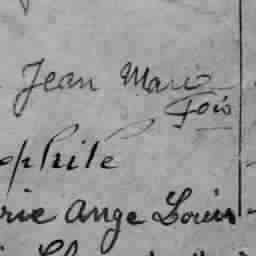 Jean Marie
Fois
ophile
rie Ange Louis